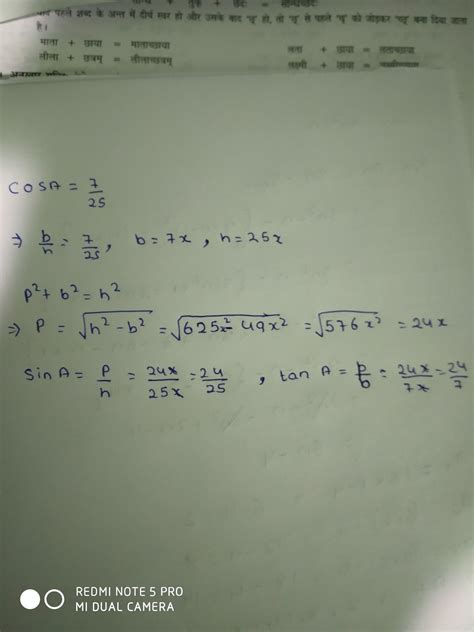 पहले शब्द के अन्त में दीर्घ स्वर हो और उसके बाद 'छ्' हो, तो 'छ्' से पहले 'च्' को जोड़कर 'च्छ्' बना दिया जाता
है।
माता + छाया = माताच्छाया लता + छाया = लताच्छाया
लीला + छत्रम् = लीलाच्छत्रम् लक्ष्मी + छाया =
cosA = 7/25
⇒ b/h = 7/25, b = 7x, h = 25x
p² + b² = h²
⇒ P = √h² - b² = √625x² - 49x² = √576x² = 24x
Sin A = P/h = 24x/25x = 24/25, tan A = p/b = 24x/7x = 24/7
REDMI NOTE 5 PRO
MI DUAL CAMERA